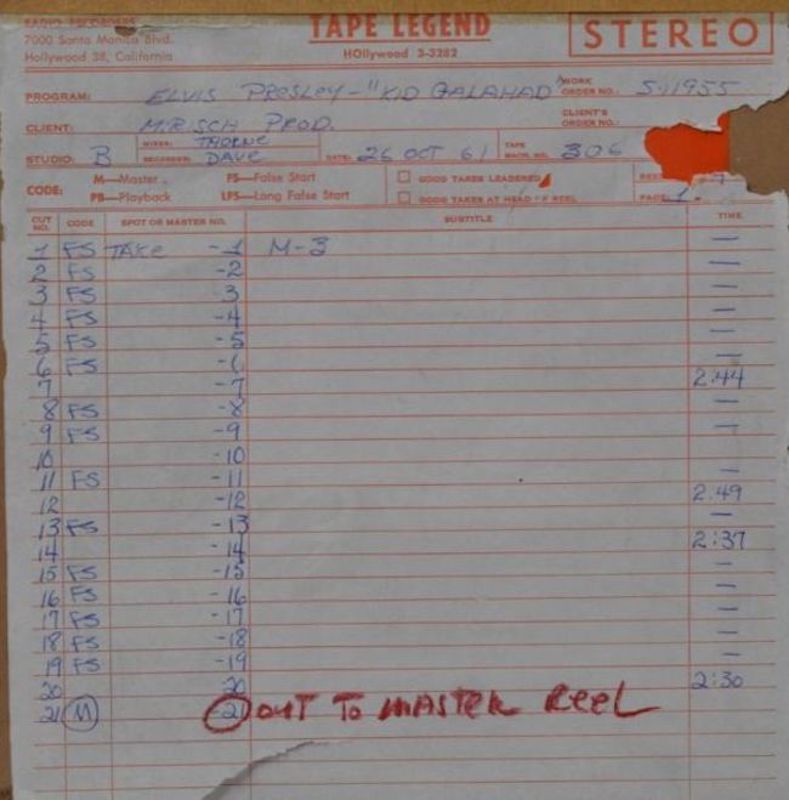 RADIO RECORDERS
7000 Santa Monica Blvd.
Hollywood 38, California
TAPE LEGEND
HOllywood 3-3282
STEREO
PROGRAM: ELVIS PRESLEY - "KID GALAHAD" WORK ORDER NO.: S-1955
CLIENT: MIRISCH PROD. CLIENT'S ORDER NO.:
STUDIO: B MIXER: THORNE RECORDER: DAVE DATE: 26 OCT 61 TAPE MACH. NO. 306
CODE: M—Master FS—False Start GOOD TAKES LEADERED REEL
PB—Playback LFS—Long False Start GOOD TAKES AT HEAD OF REEL PAGE 1
CUT NO. CODE SPOT OR MASTER NO. SUBTITLE TIME
1 FS TAKE -1 M-3 —
2 FS -2 —
3 FS -3 —
4 FS -4 —
5 FS -5 —
6 FS -6 —
7 -7 2:44
8 FS -8 —
9 FS -9 —
10 -10
11 FS -11 —
12 -12 2:49
13 FS -13 —
14 -14 2:37
15 FS -15 —
16 FS -16 —
17 FS -17 —
18 FS -18 —
19 FS -19 —
20 20 2:30
21 M -21 OUT TO MASTER REEL